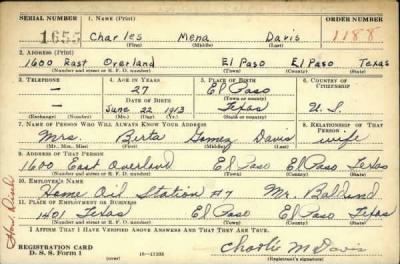 SERIAL NUMBER 1. NAME (Print) ORDER NUMBER
1655 Charles Mena Davis 1188
(First) (Middle) (Last)
2. ADDRESS (Print)
1600 East Overland El Paso El Paso Texas
(Number and street or R. F. D. number) (Town) (County) (State)
3. TELEPHONE 4. AGE IN YEARS 5. PLACE OF BIRTH 6. COUNTRY OF CITIZENSHIP
— 27 El Paso
DATE OF BIRTH (Town or county)
— June 22 1913 Texas U.S.
(Exchange) (Number) (Mo.) (Day) (Yr.) (State or country)
7. NAME OF PERSON WHO WILL ALWAYS KNOW YOUR ADDRESS 8. RELATIONSHIP OF THAT PERSON
Mrs. Berta Gomez Davis wife
(Mr., Mrs., Miss) (First) (Middle) (Last)
9. ADDRESS OF THAT PERSON
1600 East Overland El Paso El Paso Texas
(Number and street or R. F. D. number) (Town) (County) (State)
10. EMPLOYER'S NAME
Home Oil Station #7 Mr.
11. PLACE OF EMPLOYMENT OR BUSINESS
1401 Texas El Paso El Paso Texas
(Number and street or R. F. D. number) (Town) (County) (State)
I AFFIRM THAT I HAVE VERIFIED ABOVE ANSWERS AND THAT THEY ARE TRUE.
REGISTRATION CARD
D. S. S. Form 1 (over) Charlie M Davis
(Registrant's signature)